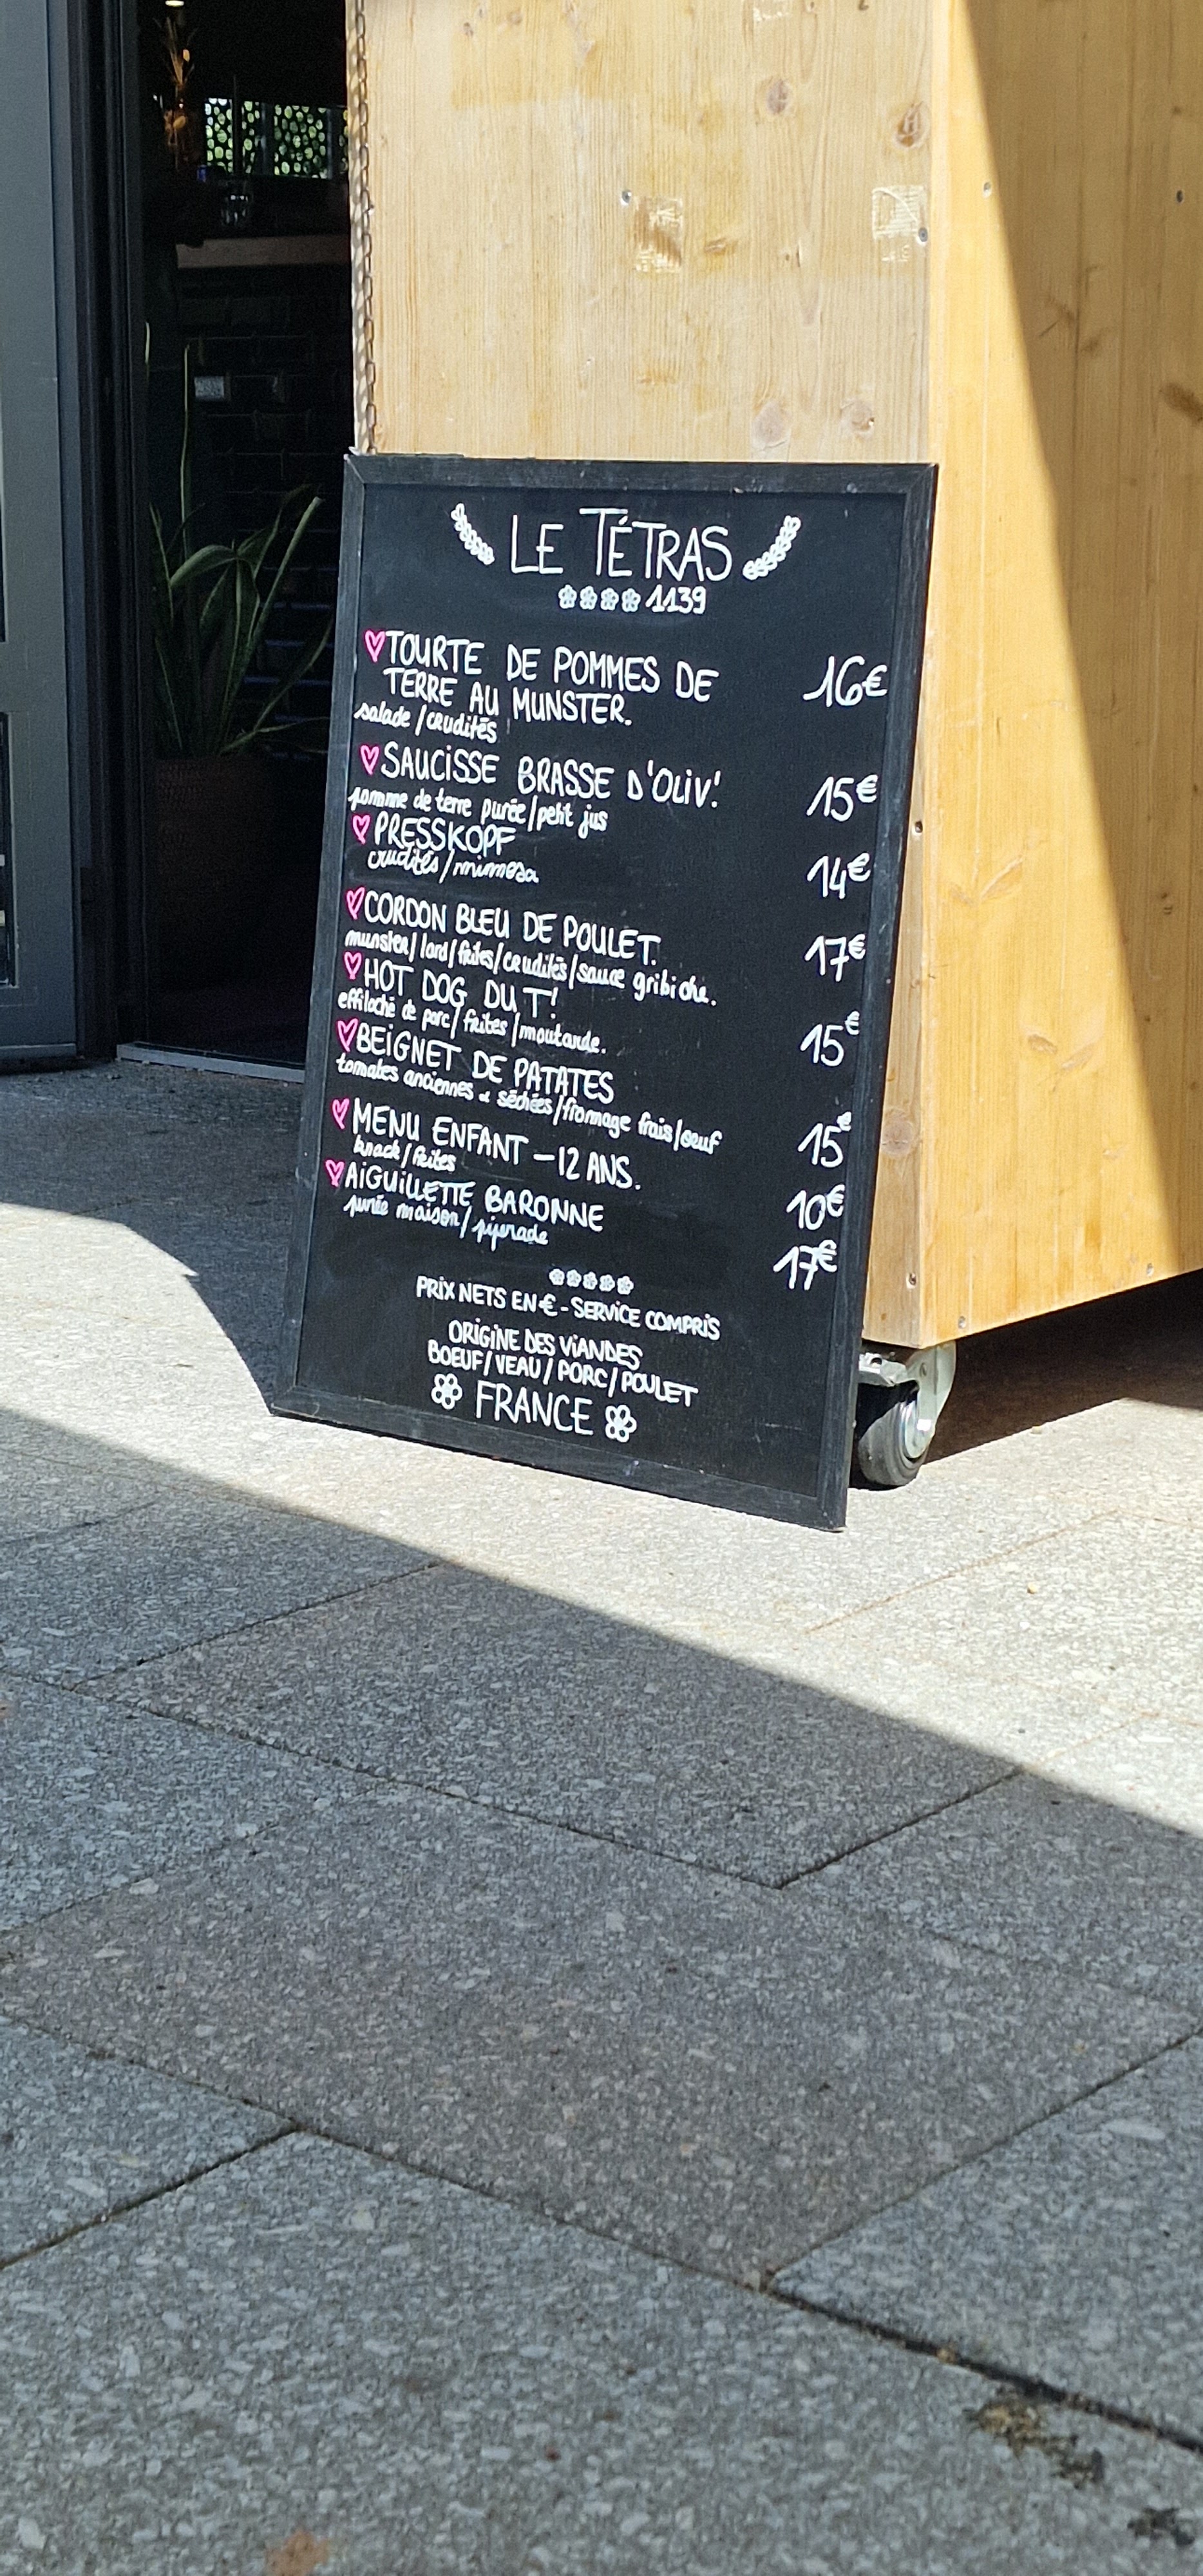 LE TÉTRAS
1139
TOURTE DE POMMES DE
TERRE AU MUNSTER. 16€
salade/crudités
SAUCISSE BRASSE D'OLIV! 15€
pomme de terre purée/petit jus
PRESSKOPF 14€
crudités/mimosa
CORDON BLEU DE POULET. 17€
munster/lard/frites/crudités/sauce gribiche.
HOT DOG DU T! 15€
effiloché de porc/frites/moutarde.
BEIGNET DE PATATES 15€
tomates anciennes & séchées/fromage frais/oeuf
MENU ENFANT -12 ANS. 10€
knack/frites
AIGUILLETTE BARONNE 17€
purée maison/piperade
PRIX NETS EN € - SERVICE COMPRIS
ORIGINE DES VIANDES
BOEUF/VEAU/PORC/POULET
FRANCE